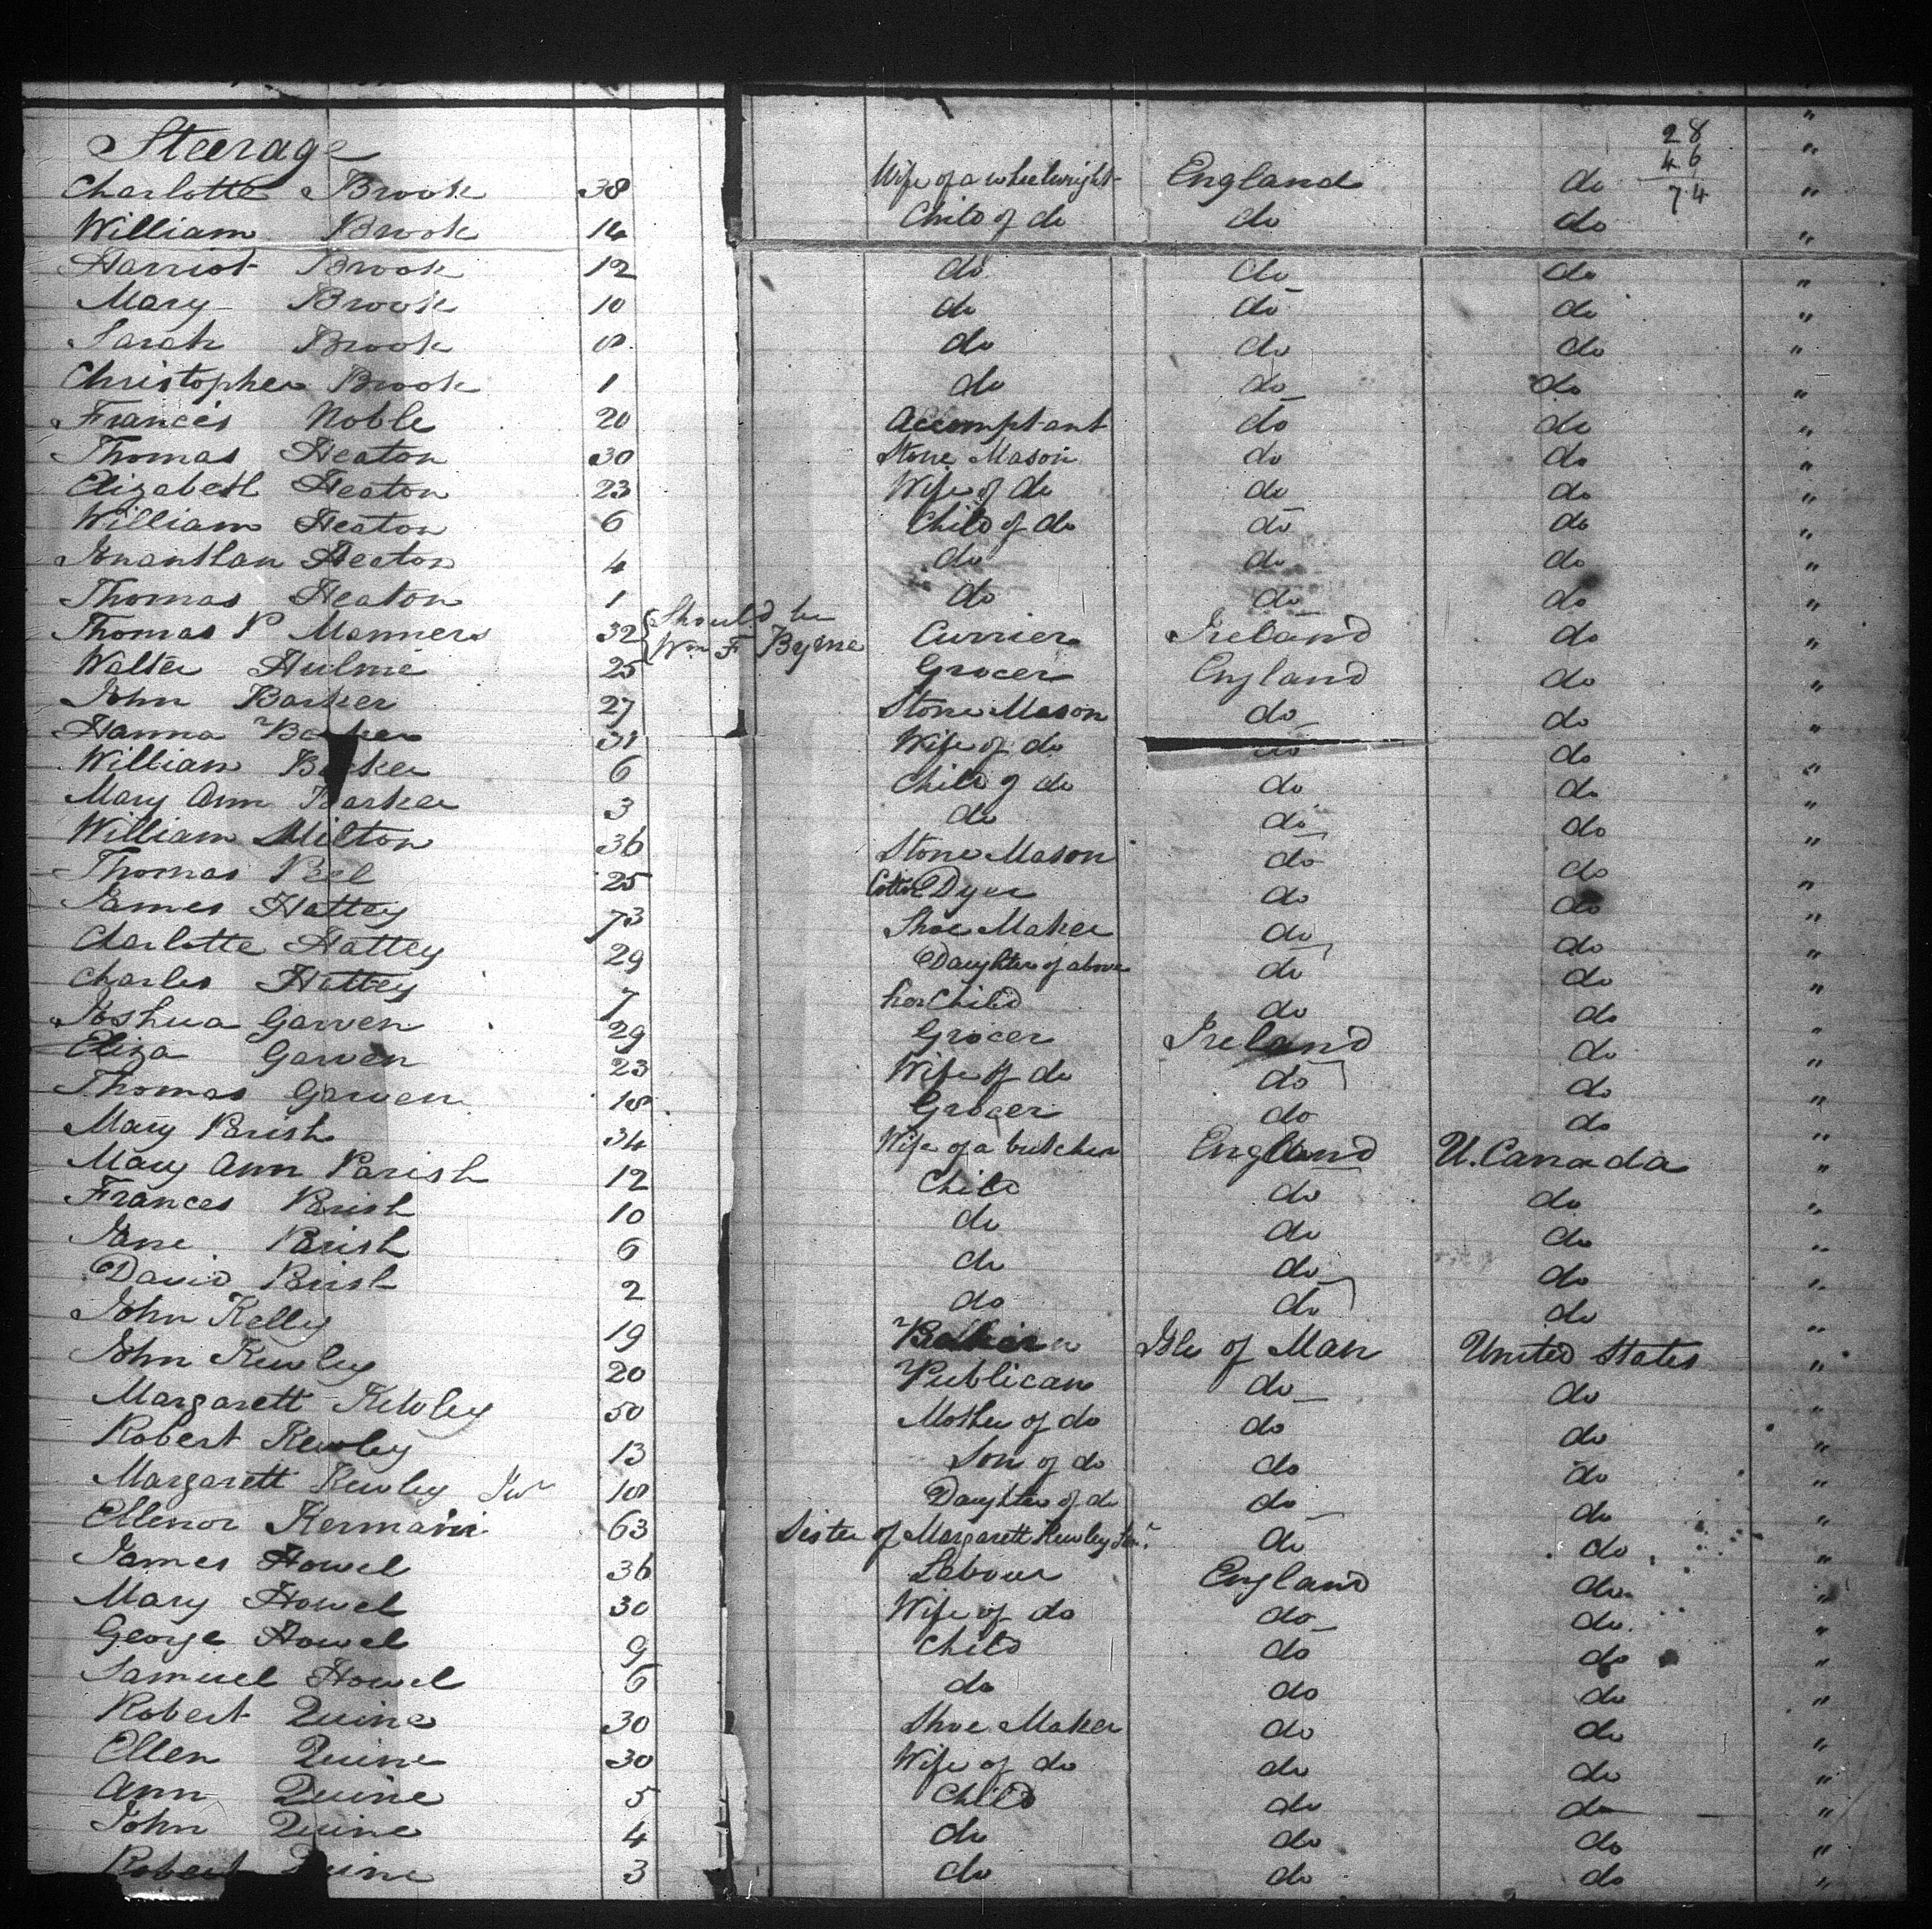 Steerage 28
46
74
Charlotte Brook 38 Wife of a wheelwright England do "
William Brook 14 Child of do do do "
Harriot Brook 12 do do do "
Mary Brook 10 do do do "
Sarah Brook 8 do do do "
Christopher Brook 1 do do do "
Francis Noble 20 Accomptant do do "
Thomas Heaton 30 Stone Mason do do "
Elizabeth Heaton 23 Wife of do do do "
William Heaton 6 Child of do do do "
Jonanthan Heaton 4 do do do "
Thomas Heaton 1 do do do "
Thomas P Manners 32 {Should be Wm F Byrne Currier Ireland do "
Walter Hulme 25 Grocer England do "
John Barker 27 Stone Mason do do "
Hanna Barker 31 Wife of do do do "
William Barker 6 Child of do do do "
Mary Ann Barker 3 do do do "
William Milton 36 Stone Mason do do "
Thomas Peel 25 Cotton Dyer do do "
James Hattey 73 Shoe Maker do do "
Charlotte Hattey 29 Daughter of above do do "
Charles Hattey 7 her Child do do "
Joshua Garven 29 Grocer Ireland do "
Eliza Garven 23 Wife of do do do "
Thomas Garven 18 Grocer do do "
Mary Parish 34 Wife of a butcher England U. Canada "
Mary Ann Parish 12 Child do do "
Frances Parish 10 do do do "
Jane Parish 6 do do do "
David Parish 2 do do do "
John Kelly 19 Isle of Man United States "
John Kewley 20 Publican do do "
Margarett Kewley 50 Mother of do do do "
Robert Kewley 13 Son of do do do "
Margarett Kewley Jur 18 Daughter of do do do "
Ellenor 63 Sister of Margarett Kewley Senr do do "
James Howel 36 Labour England do "
Mary Howel 30 Wife of do do do "
George Howel 9 Child do do "
Samuel Howel 6 do do do "
Robert Quine 30 Shoe Maker do do "
Ellen Quine 30 Wife of do do do "
Ann Quine 5 Child do do "
John Quine 4 do do do "
Robert Quine 3 do do do "